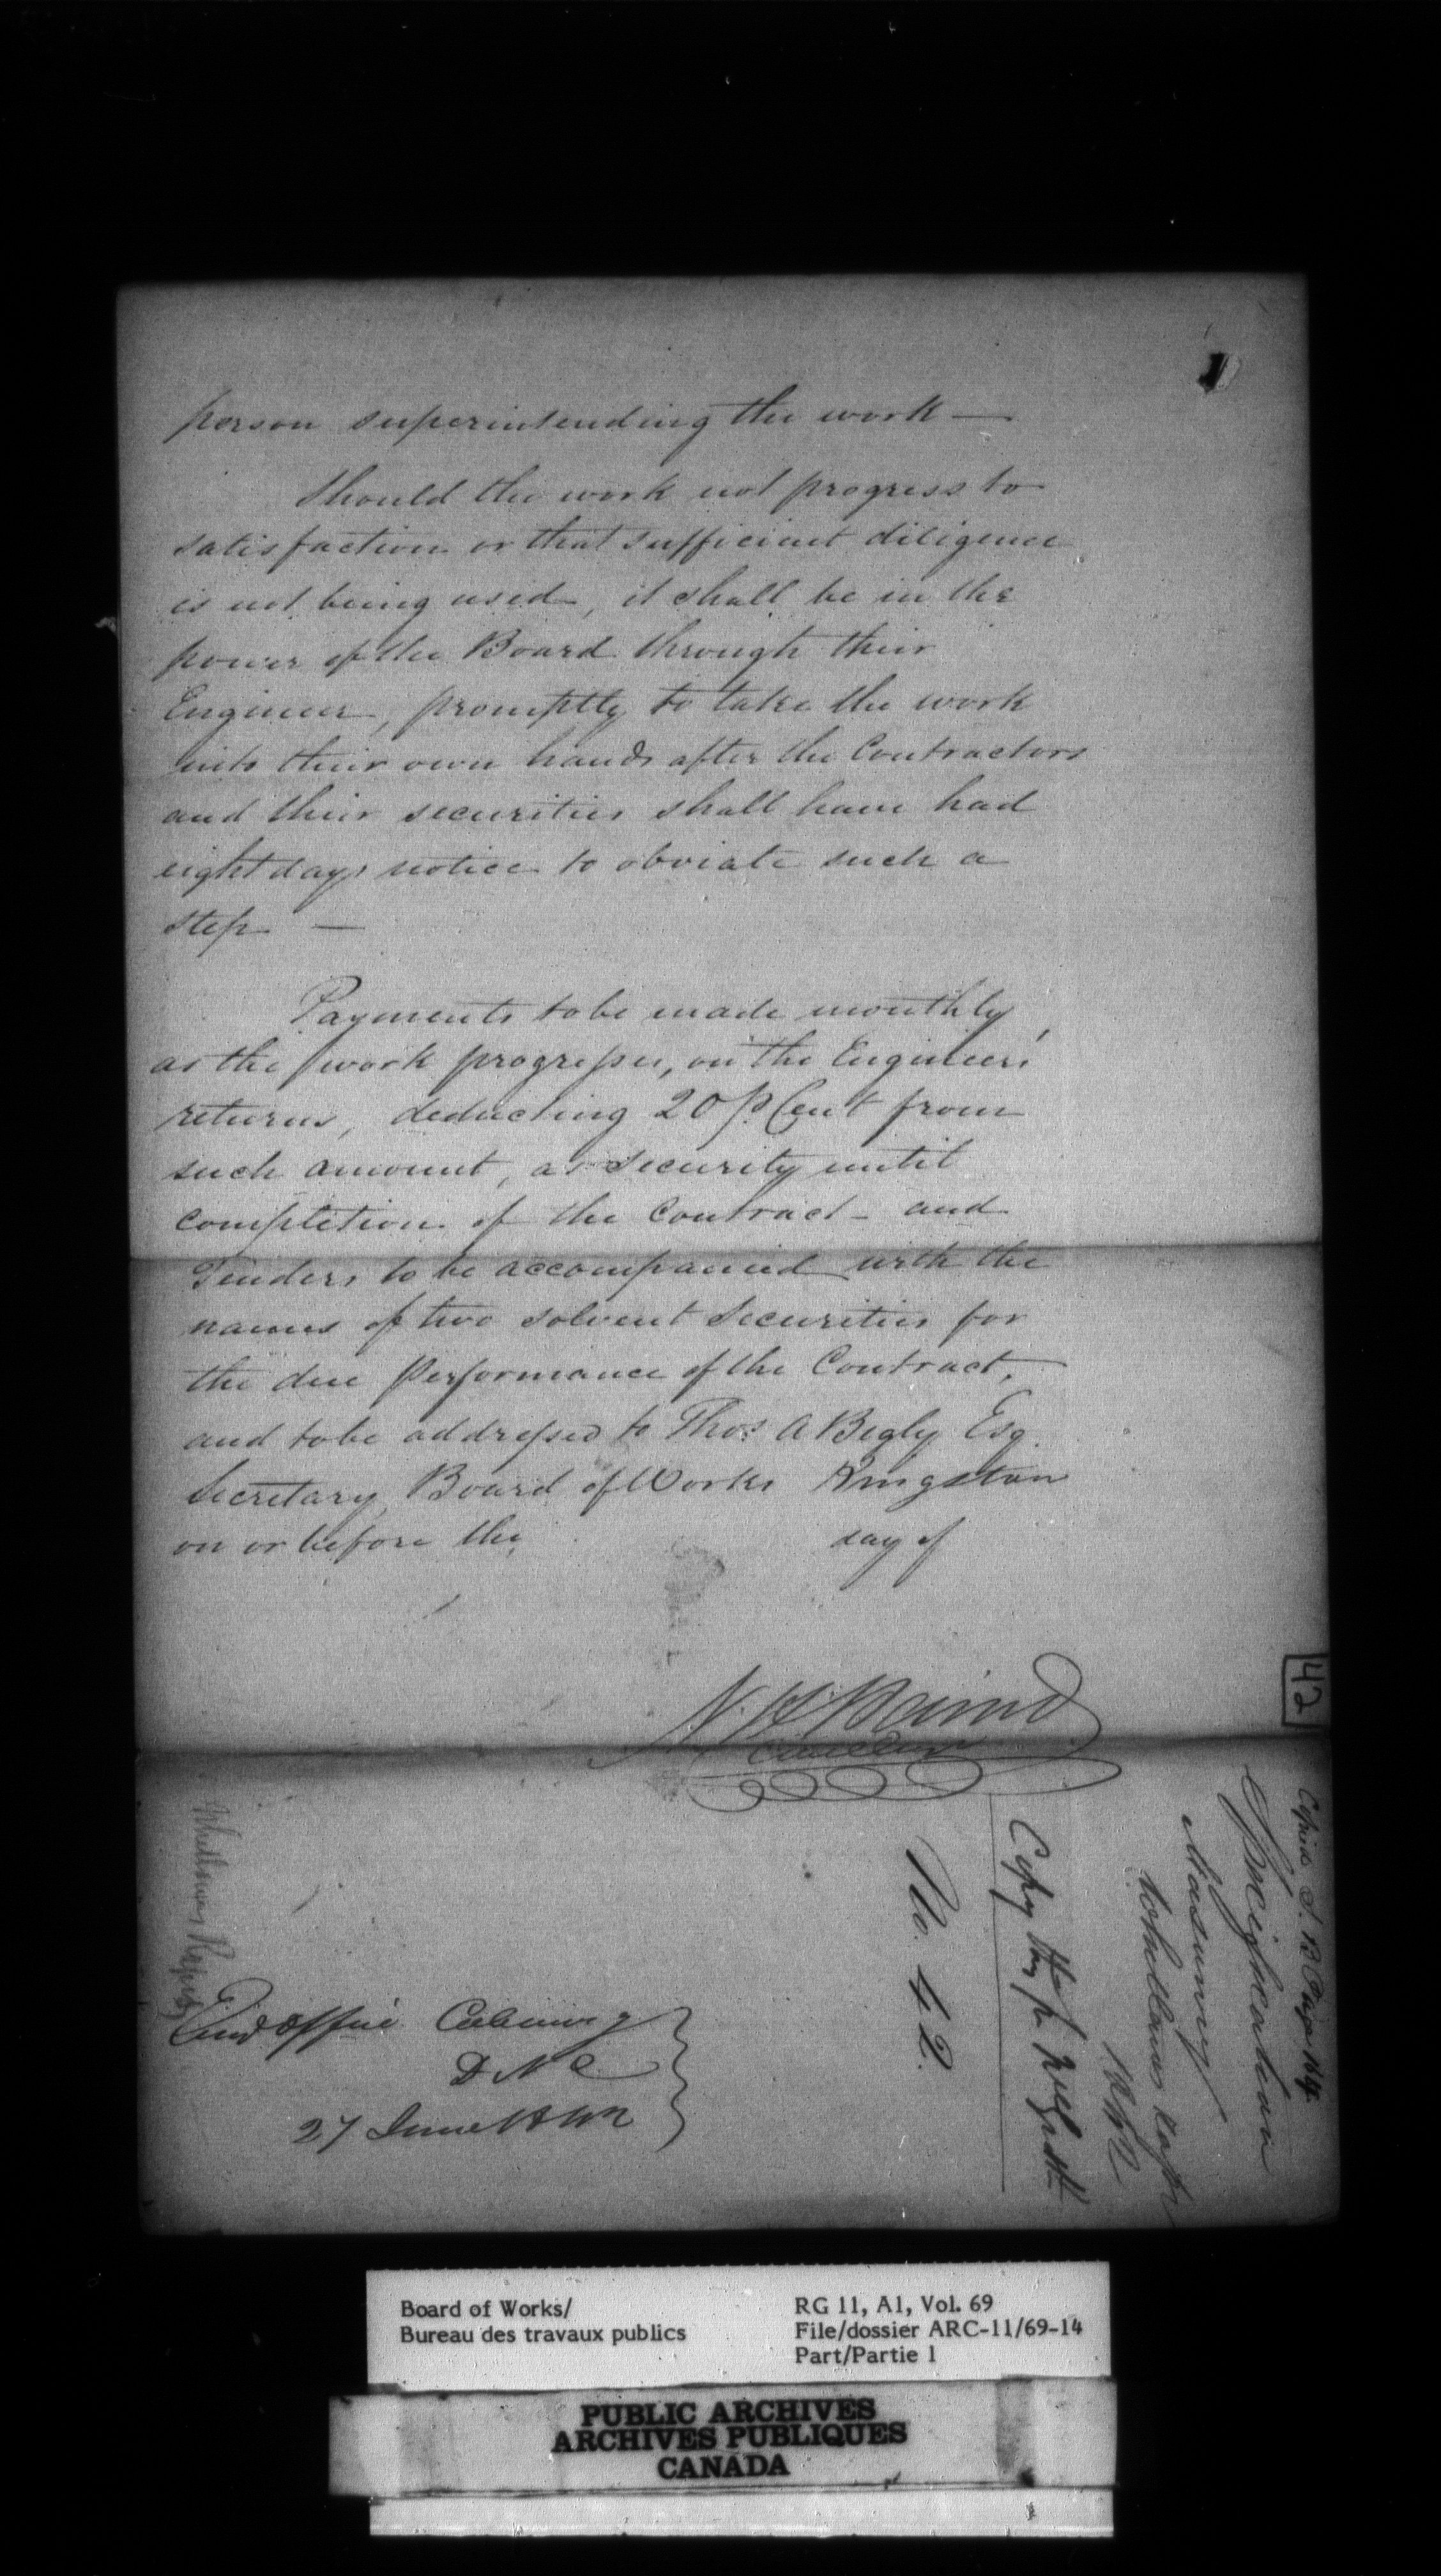 person superintending the work —
Should the work not progress to
satisfaction or that sufficient diligence
is not being used, it shall be in the
power of the Board through their
Engineer, promptly to take the work
into their own hands after the Contractors
and their securities shall have had
eight days notice to obviate such a
step —
Payments to be made monthly,
as the work progresses, on the Engineers
returns, deducting 20 P. Cent from
such amount, as security until
completion of the Contract - and
Tenders to be accompanied with the
names of two solvent Securities for
the due performance of the Contract,
and to be addressed to Thos: A Begly Esq.
Secretary Board of Works Kingston
on or before the day of
N. H. Baird
Civil Engr
Eng Office Cobourg
D N C
27 June 1842
42
Copied S. B. Page 164
Specification
Masonry
1842
Copy
No. 42.
Board of Works/
Bureau des travaux publics
RG 11, A1, Vol. 69
File/dossier ARC-11/69-14
Part/Partie 1
PUBLIC ARCHIVES
ARCHIVES PUBLIQUES
CANADA